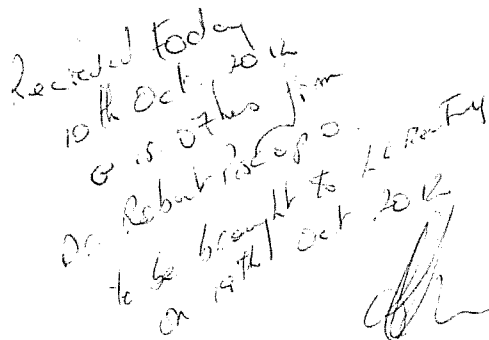 Received today
10th Oct. 2012
@ 15.07hrs from
Dr. Robert Piscopo.
to be brought to
on 14th Oct 2012